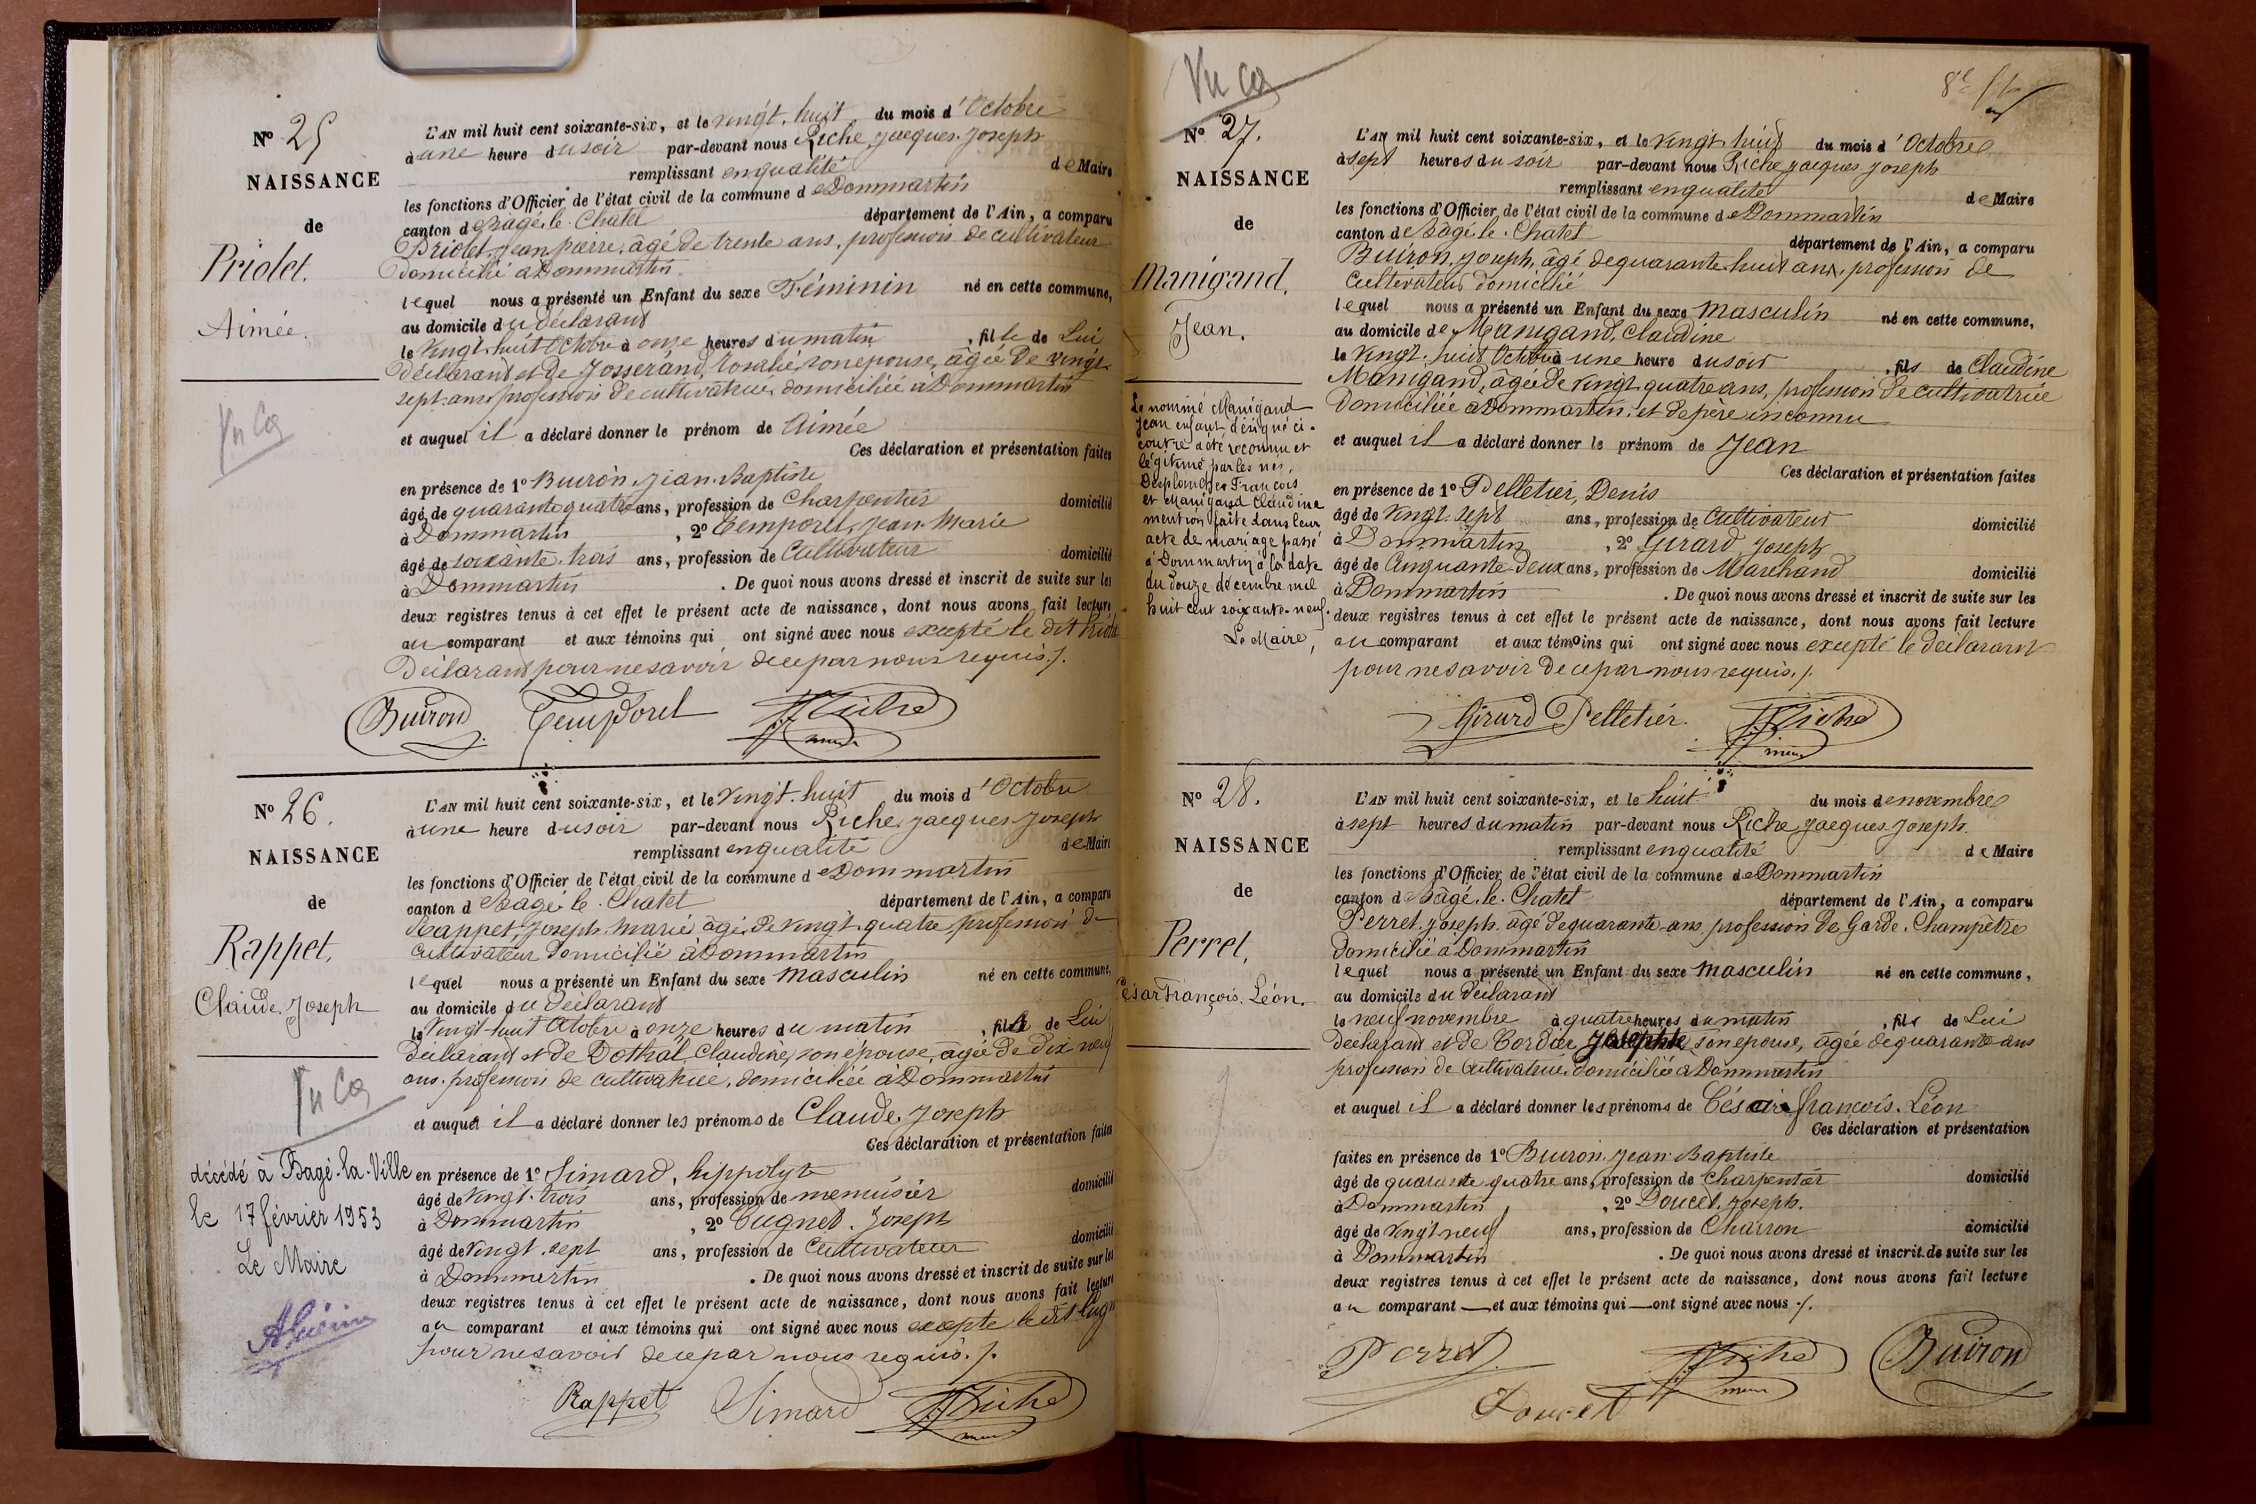 N° 25
NAISSANCE
de
Priolet.
Aimée.
Vu Ca
L'AN mil huit cent soixante-six, et le vingt. huit du mois d'Octobre
à une heure du soir par-devant nous Riche, Jacques. Joseph
remplissant en qualité de Maire
les fonctions d'Officier de l'état civil de la commune de Dommartin
canton de Bagé. le. Chatel département de l'Ain, a comparu
Priolet, Jean pierre. âgé de trente ans, profession de cultivateur
domicilié à Dommartin
lequel nous a présenté un Enfant du sexe Féminin né en cette commune,
au domicile du déclarant
le vingt. huit Octobre à onze heures du matin, fille de Lui
déclarant et de Josserand, Rosalie, son épouse, âgée de vingt
sept. ans profession de cultivatrice domiciliée à Dommartin
et auquel il a déclaré donner le prénom de Aimée
Ces déclaration et présentation faites
en présence de 1° Buiron, Jean. Baptiste
âgé de quarante quatre ans, profession de Charpentier domicilié
à Dommartin, 2° Temporel, Jean Marie
âgé de soixante. trois ans, profession de Cultivateur domicilié
à Dommartin. De quoi nous avons dressé et inscrit de suite sur les
deux registres tenus à cet effet le présent acte de naissance, dont nous avons fait lecture
au comparant et aux témoins qui ont signé avec nous excepté le dit Priolet
Déclarant pour ne savoir de ce par nous requis./.
Buiron Temporel Riche
maire
N° 26.
NAISSANCE
de
Rappet,
Claude. Joseph
Vu Ca
décédé à Bagé-la-Ville
le 17 février 1953
Le Maire
L'AN mil huit cent soixante-six, et le vingt. huit du mois d'Octobre
à une heure du soir par-devant nous Riche, Jacques Joseph
remplissant en qualité de Maire
les fonctions d'Officier de l'état civil de la commune de Dommartin
canton de Bagé. le. Chatel département de l'Ain, a comparu
Rappet, Joseph. Marie âgé de vingt. quatre profession de
cultivateur domicilié à Dommartin
lequel nous a présenté un Enfant du sexe masculin né en cette commune,
au domicile du déclarant
le vingt-huit Octobre à onze heures du matin, fils de Lui
déclarant et de Dothal, Claudine, son épouse, âgée de dix neuf
ans. profession de cultivatrice, domiciliée à Dommartin
et auquel il a déclaré donner les prénoms de Claude. Joseph
Ces déclaration et présentation faites
en présence de 1° Simard, hippolyte
âgé de vingt. trois ans, profession de menuisier domicilié
à Dommartin, 2° Cugnet. Joseph
âgé de vingt. sept ans, profession de Cultivateur domicilié
à Dommartin. De quoi nous avons dressé et inscrit de suite sur les
deux registres tenus à cet effet le présent acte de naissance, dont nous avons fait lecture
au comparant et aux témoins qui ont signé avec nous excepté le dit Cugn
pour ne savoir de ce par nous requis./.
Rappet Simard Riche
maire
Vu Ca
N° 27.
NAISSANCE
de
Manigand.
Jean.
Le nommé Manigand
Jean enfant désigné ci-
contre a été reconnu et
légitimé par les nés,
Desplanches François
et Manigand Claudine
mention faite dans leur
acte de mariage passé
à Dommartin à la date
du douze décembre mil
huit cent soixante-neuf.
Le Maire,
L'AN mil huit cent soixante-six, et le vingt huit du mois d'Octobre
à sept heures du soir par-devant nous Riche, Jacques Joseph
remplissant en qualité de Maire
les fonctions d'Officier de l'état civil de la commune de Dommartin
canton de Bâgé. le. Chatel département de l'Ain, a comparu
Buiron, Joseph, âgé de quarante huit ans, profession de
Cultivateur domicilié
lequel nous a présenté un Enfant du sexe masculin né en cette commune,
au domicile de Manigand, Claudine
le vingt. huit Octobre à une heure du soir, fils de Claudine
Manigand, âgée de vingt. quatre ans, profession de cultivatrice
domiciliée à Dommartin. et de père inconnu
et auquel il a déclaré donner le prénom de Jean
Ces déclaration et présentation faites
en présence de 1° Pelletier, Denis
âgé de vingt. sept ans, profession de Cultivateur domicilié
à Dommartin, 2° Girard, Joseph
âgé de Cinquante-deux ans, profession de Marchand domicilié
à Dommartin. De quoi nous avons dressé et inscrit de suite sur les
deux registres tenus à cet effet le présent acte de naissance, dont nous avons fait lecture
au comparant et aux témoins qui ont signé avec nous excepté le déclarant
pour ne savoir de ce par nous requis./.
Girard Pelletier. Riche
maire
N° 28.
NAISSANCE
de
Perret,
César François. Léon.
L'AN mil huit cent soixante-six, et le huit du mois de novembre
à sept heures du matin par-devant nous Riche, Jacques Joseph.
remplissant en qualité de Maire
les fonctions d'Officier de l'état civil de la commune de Dommartin
canton de Bâgé. le. Chatel département de l'Ain, a comparu
Perret. Joseph. âgé de quarante ans profession de Garde. Champêtre
domicilié à Dommartin
lequel nous a présenté un Enfant du sexe masculin né en cette commune,
au domicile du déclarant
le neuf novembre à quatre heures du matin, fils de Lui
déclarant et de Cordier Josephte son épouse, âgée de quarante ans
profession de Cultivatrice domiciliée à Dommartin
et auquel il a déclaré donner les prénoms de César françois. Léon
Ces déclaration et présentation
faites en présence de 1° Buiron. Jean. Baptiste
âgé de quarante quatre ans, profession de Charpentier domicilié
à Dommartin, 2° Doucet, Joseph.
âgé de vingt neuf ans, profession de Charron domicilié
à Dommartin. De quoi nous avons dressé et inscrit de suite sur les
deux registres tenus à cet effet le présent acte de naissance, dont nous avons fait lecture
au comparant — et aux témoins qui — ont signé avec nous ./.
Perret Riche Buiron
maire
Doucet